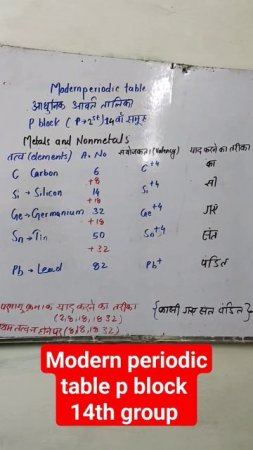 Modern periodic table
आधुनिक आवर्त तालिका
P block ( P→2st) 14वाँ समूह
Metals and Nonmetals
तत्व (elements) A.No संयोजकता (Valency) याद करने का तरीका
C Carbon 6 C+4 का
+8
Si → Silicon 14 Si+4 सी
+18
Ge → Germanium 32 Ge+4 गस
+18
Sn → Tin 50 Sn+4 संत
+32
Pb → Lead 82 Pb+ पंडित
परमाणु क्रमांक याद करने का तरीका
(2,8,18,18 32) {कासी गस संत पंडित}
(8,18,18 32)
Modern periodic
table p block
14th group